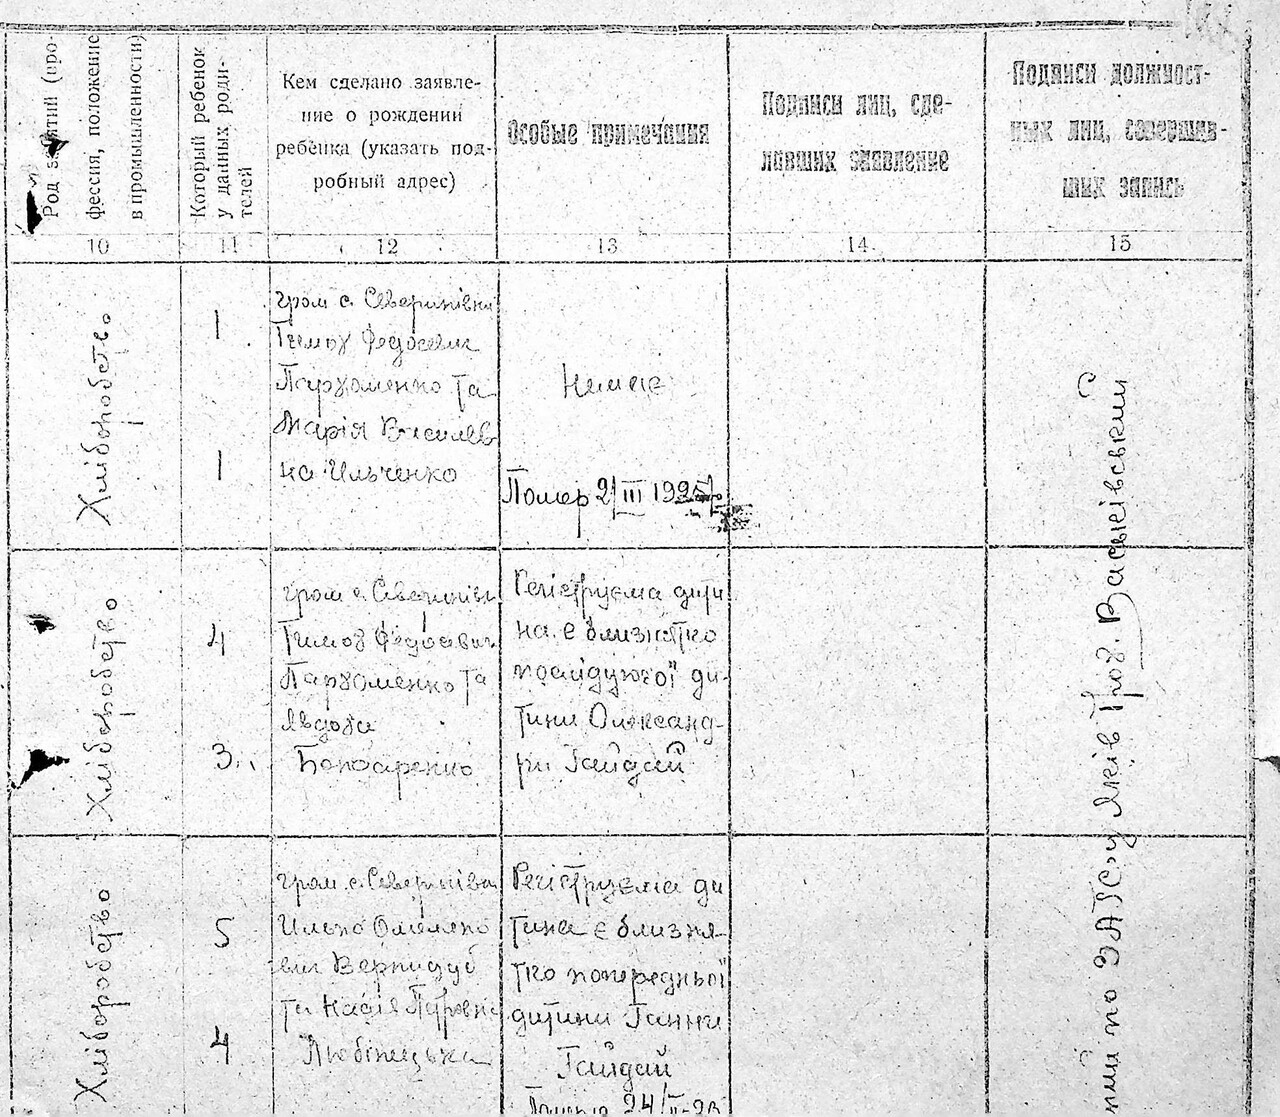 Род занятий (про-
фессия, положение
в промышленности)
Который ребенок
у данных роди-
телей
Кем сделано заявле-
ние о рождении
ребенка (указать под-
робный адрес)
Особые примечания
Подписи лиц, сде-
лавших заявление
Подписи должност-
ных лиц, совершив-
ших запись
10
11
12
13
14.
15
Хліборобство
1
1
гром с. Северинівки
Тимох Федосевич
Пархоменко та
Марія Василів-
на Ильченко
Немає
Помер 2/III 1925
Хліборобство
4
3
гром с. Северинівки
Тимох Федосевич
Пархоменко та
Явдоха
Бондаренко
Регіструєма дити-
на є близнятко
послідуючої ди-
тини Олександ-
ри Гайдай
Хліборобство
5
4
гром с. Северинівки
Илько Омеляно-
вич Вернидуб
та Надія Петровна
Любінецька
Регіструєма ди
тина є близня-
тко попередньої
дитини Ганни
Гайдай
24/II-
по ЗАГС'у Яків Троф. Васьківський